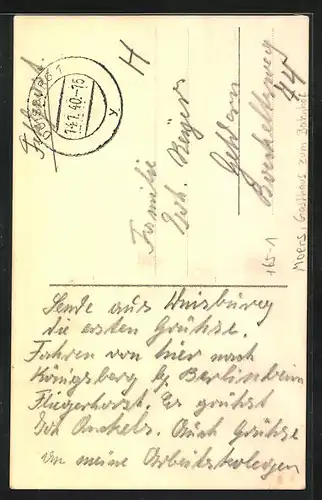 Feldpost
14.1.40.-16
H
Familie
Joh. Beyers
Geldern
44
165-1
Moers, Gasthaus zum Bahnhof
Sende aus Duisburg
die ersten Grühse.
Fahren von hier nach
Königsberg b/ Berlin beim
Fliegerhorst. Es grühst
Joh Auch Grühse
an meine Arbeitskolegen